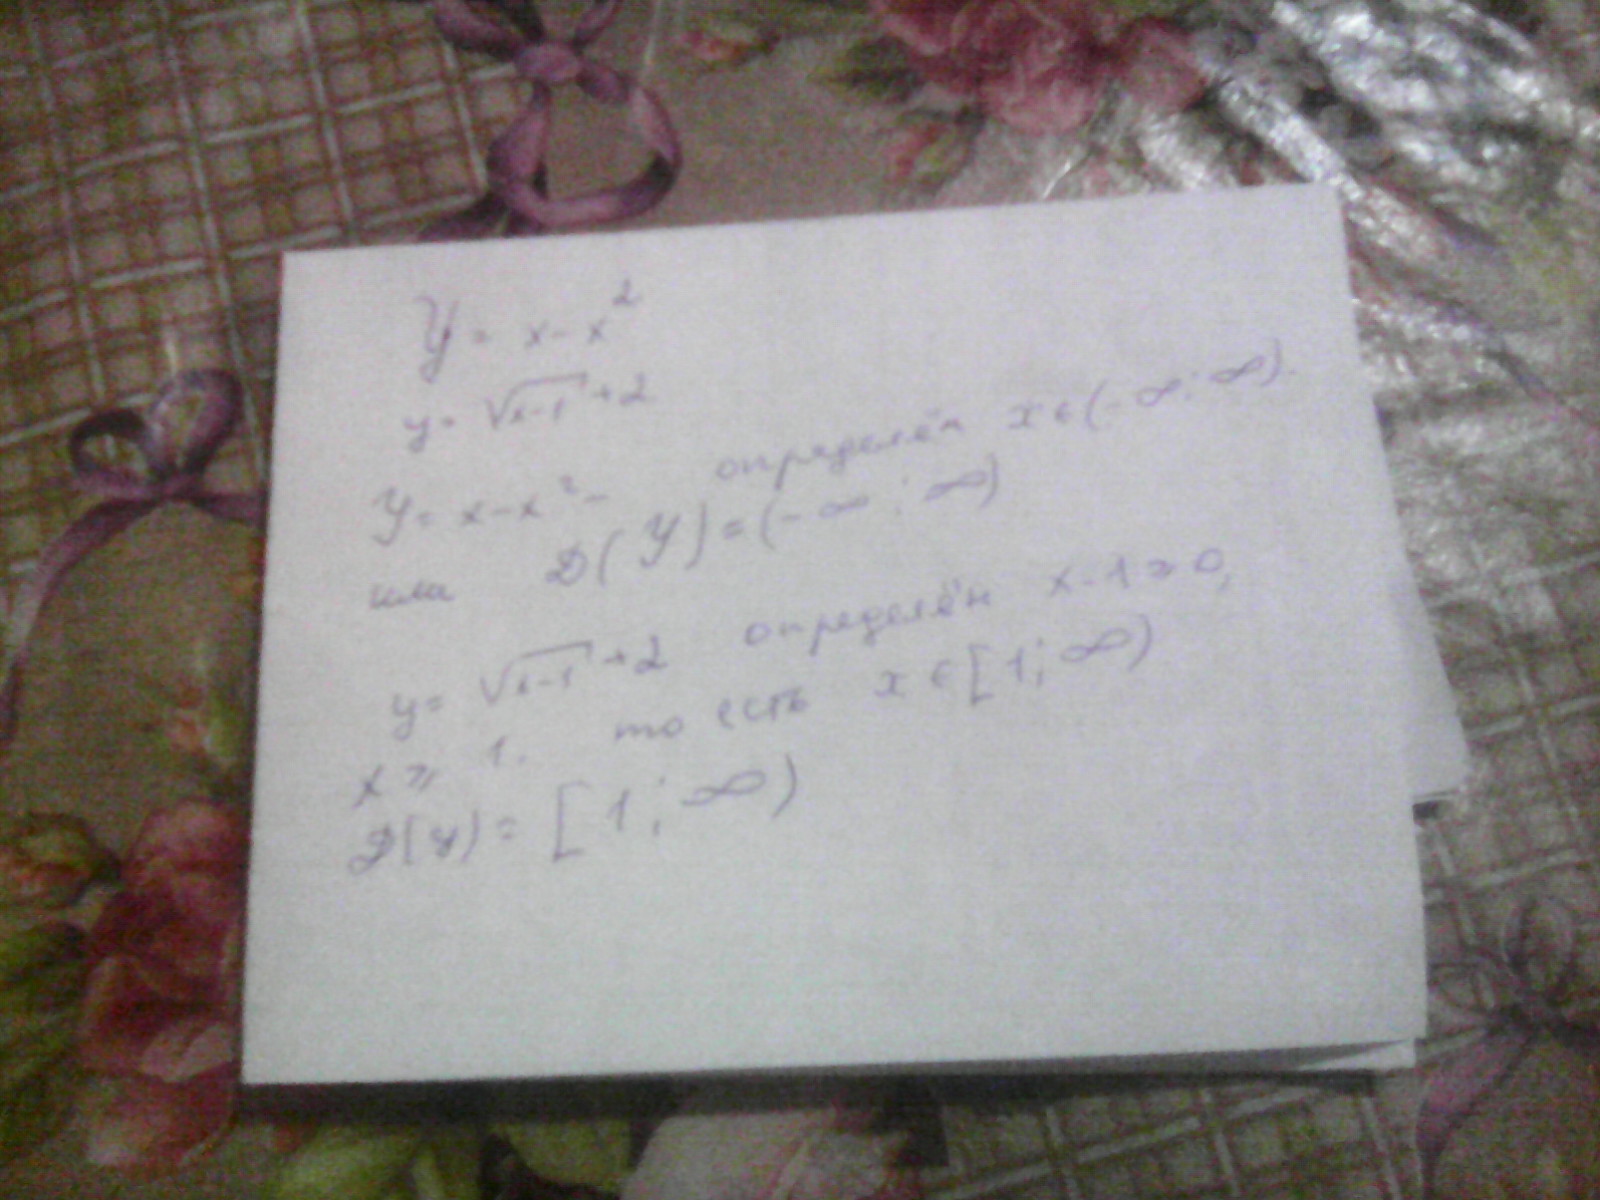 y = x - x²
y = √x-1 + 2
y = x - x² - определён x ∈ (-∞; ∞).
или D(y) = (-∞; ∞)
y = √x-1 + 2 определён x-1 ≥ 0,
x ≥ 1. то есть x ∈ [1; ∞)
D(y) = [1; ∞)